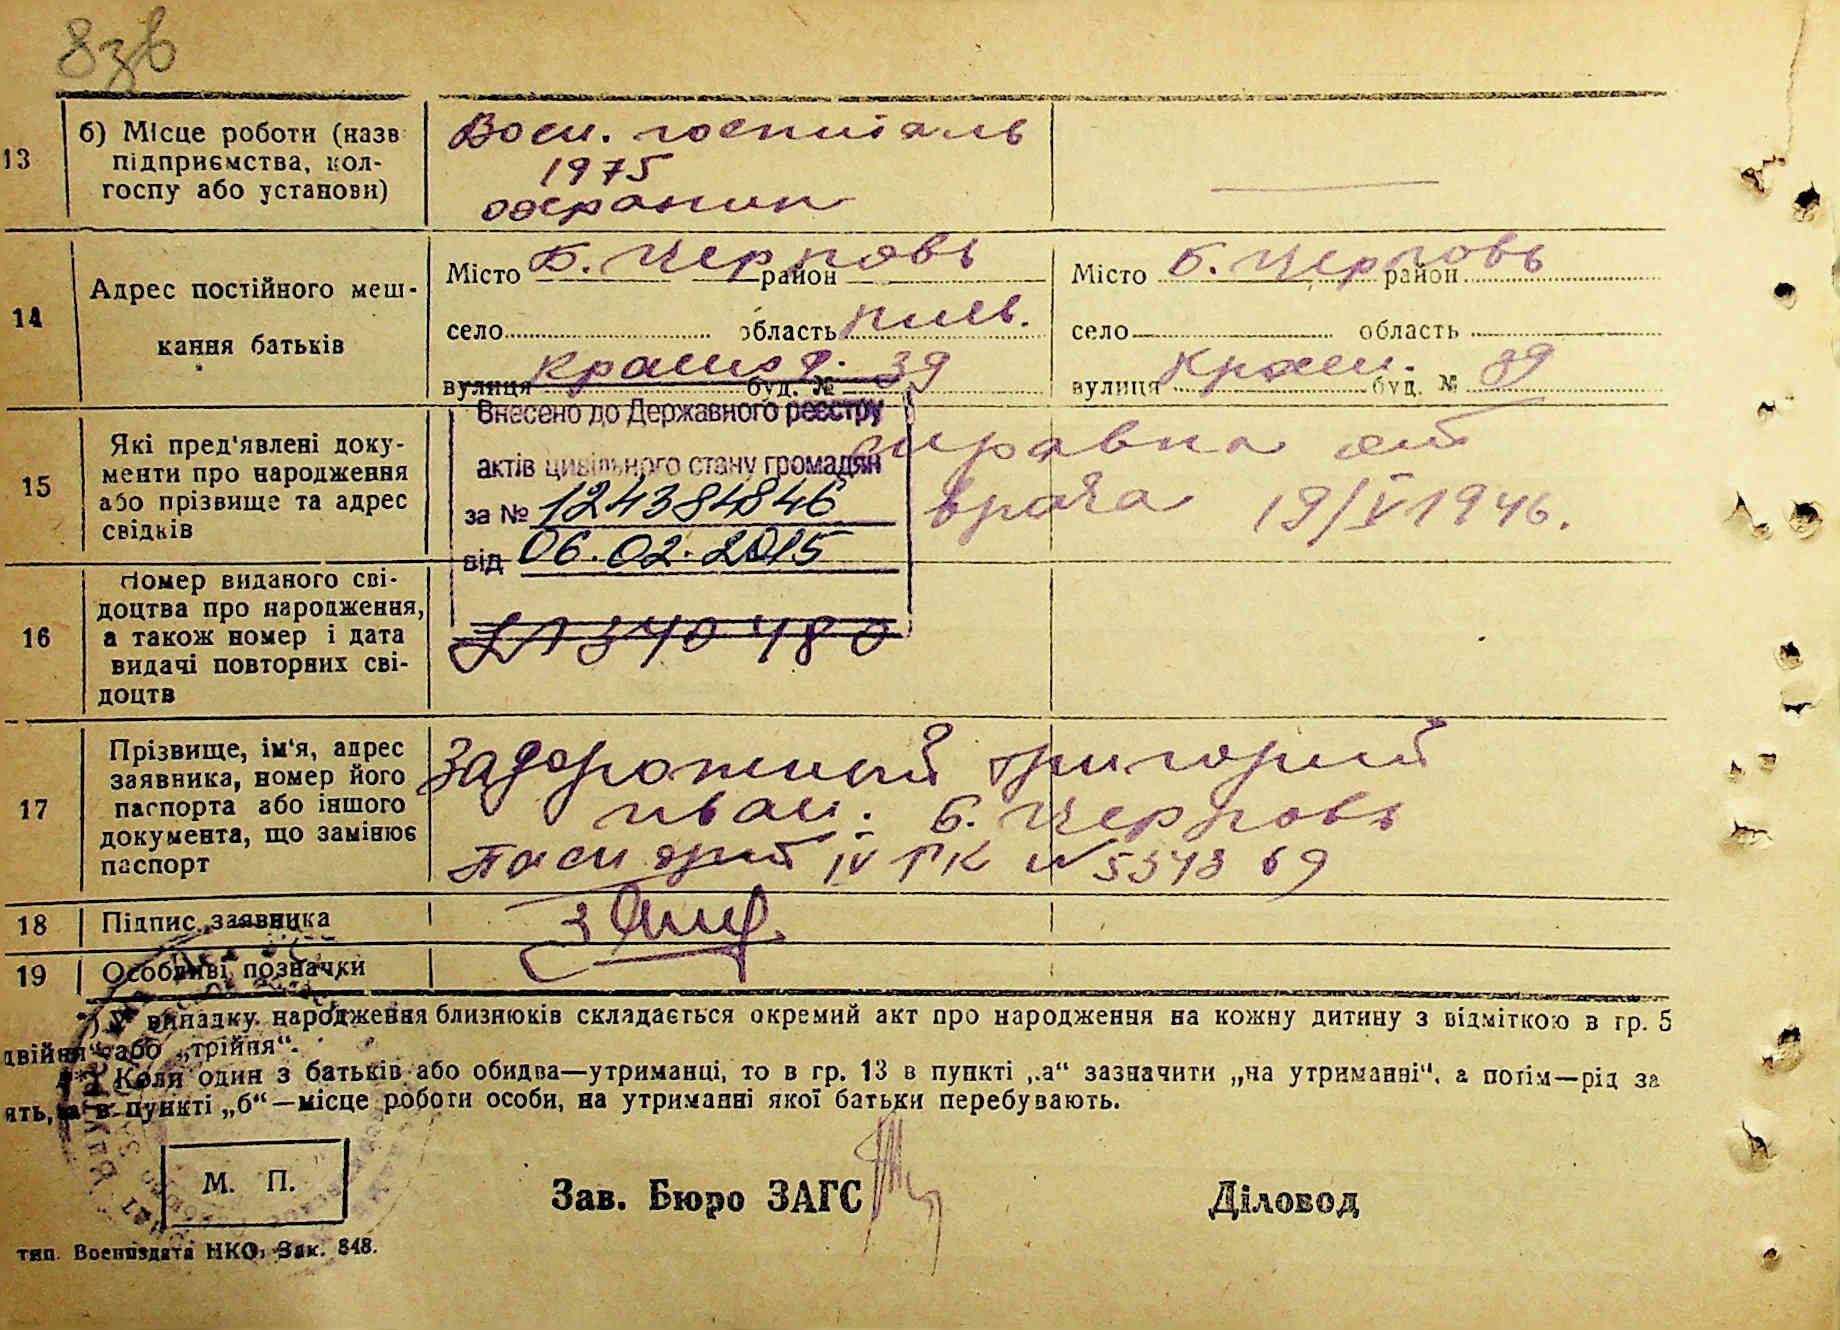 8зв
13
б) Місце роботи (назв
підприємства, кол-
госпу або установи)
Воен. госпиталь
1975
охранник
14
Адрес постійного меш-
кання батьків
Місто Б. Церковь район
село область Киев.
вулиця буд. № 39
Місто Б. Церковь район
село область
вулиця Красн. буд. № 39
15
Які пред'явлені доку-
менти про народження
або прізвище та адрес
свідків
справка от
врача 19/V 1946.
Внесено до Державного реєстру
актів цивільного стану громадян
за № 124384846
від 06.02.2015
16
Номер виданого сві-
доцтва про народження,
а також номер і дата
видачі повторних сві-
доцтв
340480
17
Прізвище, ім'я, адрес
заявника, номер його
паспорта або іншого
документа, що замінює
паспорт
Задорожный Григорий
Иван. Б. Церковь
Паспорт IV РК № 554869
18
Підпис заявника
19
Особливі позначки
*) У випадку народження близнюків складається окремий акт про народження на кожну дитину з відміткою в гр. 5
двійня“ або „трійня“.
**) Коли один з батьків або обидва—утриманці, то в гр. 13 в пункті „а“ зазначити „на утриманні“, а потім—рід за
ять, а в пункті „б“—місце роботи особи, на утриманні якої батьки перебувають.
М. П.
Зав. Бюро ЗАГС
Діловод
тип. Воениздата НКО, Зак. 848.